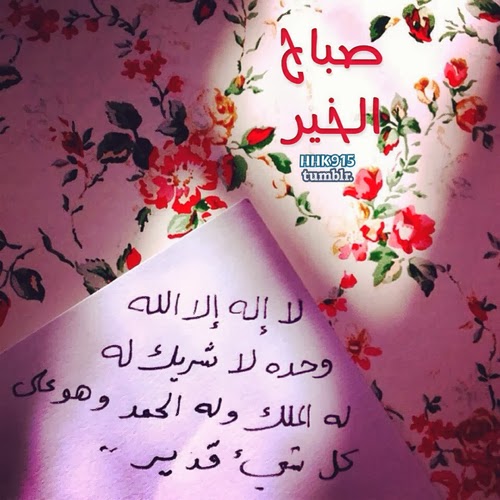 صباح
الخير
HHK915
tumblr.
لا إله إلا الله
وحده لا شريك له
له الملك وله الحمد وهو على
كل شيء قدير ..